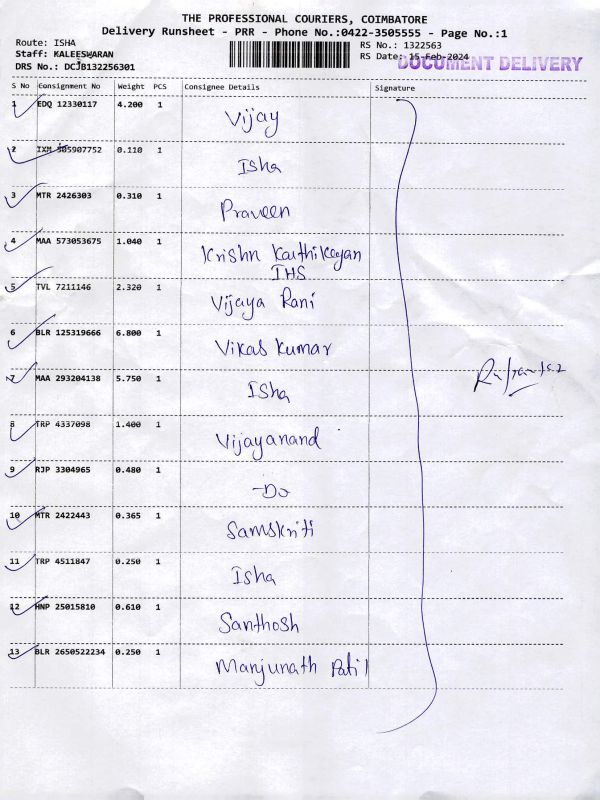 THE PROFESSIONAL COURIERS, COIMBATORE
Delivery Runsheet - PRR - Phone No.:0422-3505555 - Page No.:1
Route: ISHA
Staff: KALEESWARAN
DRS No.: DCJB132256301
RS No.: 1322563
RS Date: 15-Feb-2024
DOCUMENT DELIVERY
S No Consignment No Weight PCS Consignee Details Signature
1 EDQ 12330117 4.200 1 Vijay
2 IXM 305907752 0.110 1 Isha
3 MTR 2426303 0.310 1 Praveen
4 MAA 573053675 1.040 1 Krishn Karthikeyan
IHS
5 TVL 7211146 2.320 1 Vijaya Rani
6 BLR 125319666 6.800 1 Vikas Kumar
7 MAA 293204138 5.750 1 Isha
8 TRP 4337098 1.400 1 Vijayanand
9 RJP 3304965 0.480 1 -Do
10 MTR 2422443 0.365 1 Samskriti
11 TRP 4511847 0.250 1 Isha
12 HNP 25015810 0.610 1 Santhosh
13 BLR 2650522234 0.250 1 Manjunath Patil